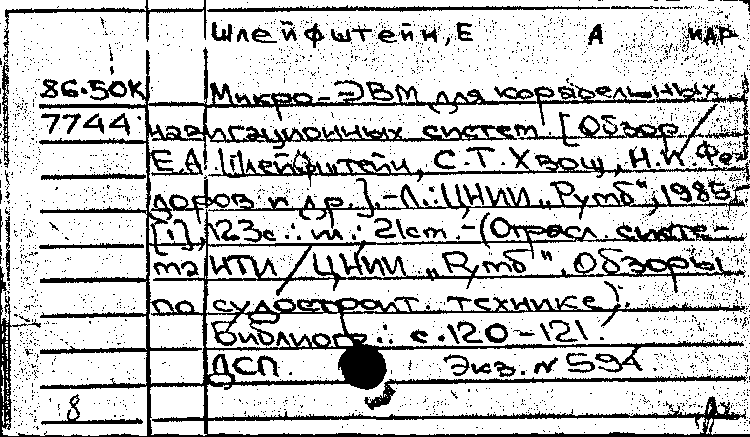 Шлейфштейн, Е А и др
86.50К Микро-ЭВМ для корабельных
7744 навигационных систем. [Обзор /
Е.А. Шлейфштейн, С.Т. Хвощ, Н.И. Фе-
доров и др.]. -Л.: ЦНИИ „Румб", 1985-
[1], 123с.: ил.: 21см. -(Отрасл. систе-
ма НТИ / ЦНИИ „Румб". Обзоры
по судостроит. технике).
Библиогр.: с.120-121.
ДСП. Экз. N 594
8